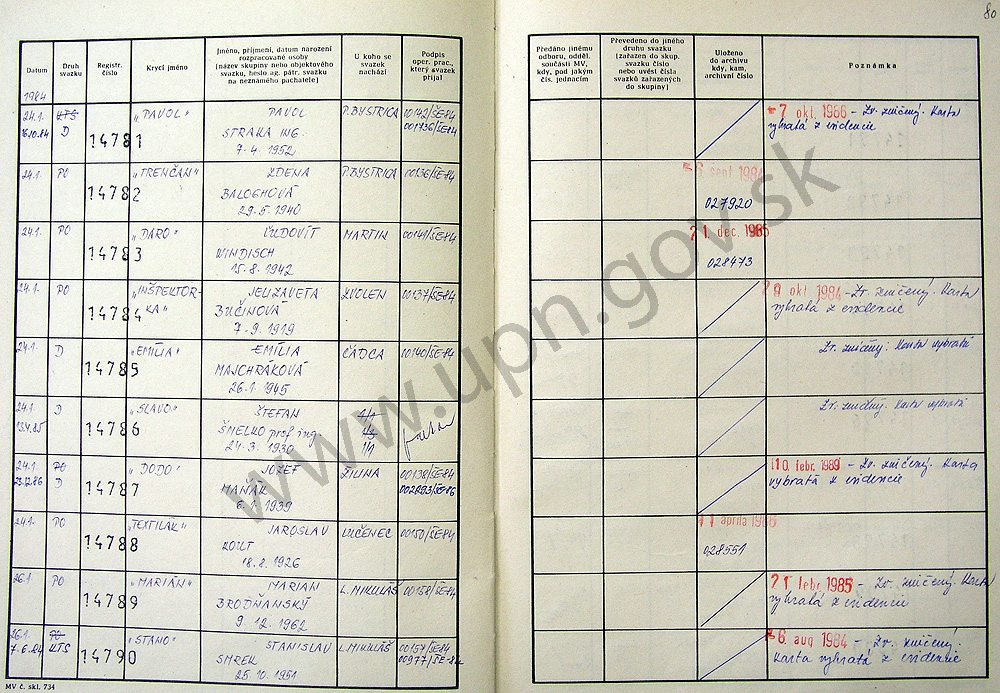 80
Datum
Druh svazku
Registr. číslo
Krycí jméno
Jméno, příjmení, datum narození
rozpracované osoby
(název skupiny nebo objektového
svazku, heslo ag. pátr. svazku
na neznámého pachatele)
U koho se
svazek
nachází
Podpis
oper. prac.,
který svazek
přijal
Předáno jinému
odboru, odděl.
součásti MV,
kdy, pod jakým
čís. jednacím
Převedeno do jiného
druhu svazku
(zařazen do skup.
svazku číslo
nebo uvést čísla
svazků zařazených
do skupiny)
Uloženo
do archivu
kdy, kam,
archivní číslo
Poznámka
1984
24.1. KTS „PAVOL" PAVOL P.BYSTRICA 00142/ŠE-84 7 okt. 1986 - Zv. zničený. Karta
16.10.84 D 14781 STRAKA ING. 001736/ŠE-84 vybratá z evidencie
7.4. 1952
24.1. PO „TRENČAN" ZDENA P.BYSTRICA 00136/ŠE-84 sept 1984
14782 BALOGHOVÁ 027920
29.5. 1940
24.1. PO „DARO" ĽUDOVÍT MARTIN 00141/ŠE-84 21. dec. 1985
14783 WINDISCH 028473
15.8. 1942
24.1. PO „INŠPEKTOR- JELIZAVETA ZVOLEN 00137/ŠE-84 okt 1984 - Zv. zničený. Karta
14784 KA" BUČINOVÁ vybratá z evidencie
7.9. 1919
24.1. D „EMÍLIA" EMÍLIA ČADCA 00140/ŠE-84 Zv. zničený. Karta vybratá
14785 MAJCHRÁKOVÁ
26.1. 1945
24.1. D „SLAVO" ŠTEFAN Zv. zničený. Karta vybratá
13.4.85 14786 ŠMELKO prof. ing.
24.3. 1930
24.1. PO „DODO" JOZEF ŽILINA 00138/ŠE-84 10. febr. 1989 - Zv. zničený. Karta
23.12.86 D 14787 MAŇÁK 002893/ŠE-86 vybratá z evidencie
6.1. 1939
24.1. PO „TEXTILÁK" JAROSLAV LUČENEC 00150/ŠE-84 11 apríla 1985
14788 KOUT 028551
18.8. 1926
26.1. PO „MARIÁN" MARIAN L.MIKULÁŠ 00158/ŠE-84 21 febr. 1985 - Zv. zničený. Karta
14789 BRODŇANSKÝ vybratá z evidencie
9.12. 1962
26.1. PO „STANO" STANISLAV L.MIKULÁŠ 00157/ŠE-84 6. aug. 1984 - Zv. zničený.
7.6.84 KTS 14790 SMREK 00977/ŠE-84 Karta vybratá z evidencie
25.10. 1951
MV č. skl. 734
www.upn.gov.sk